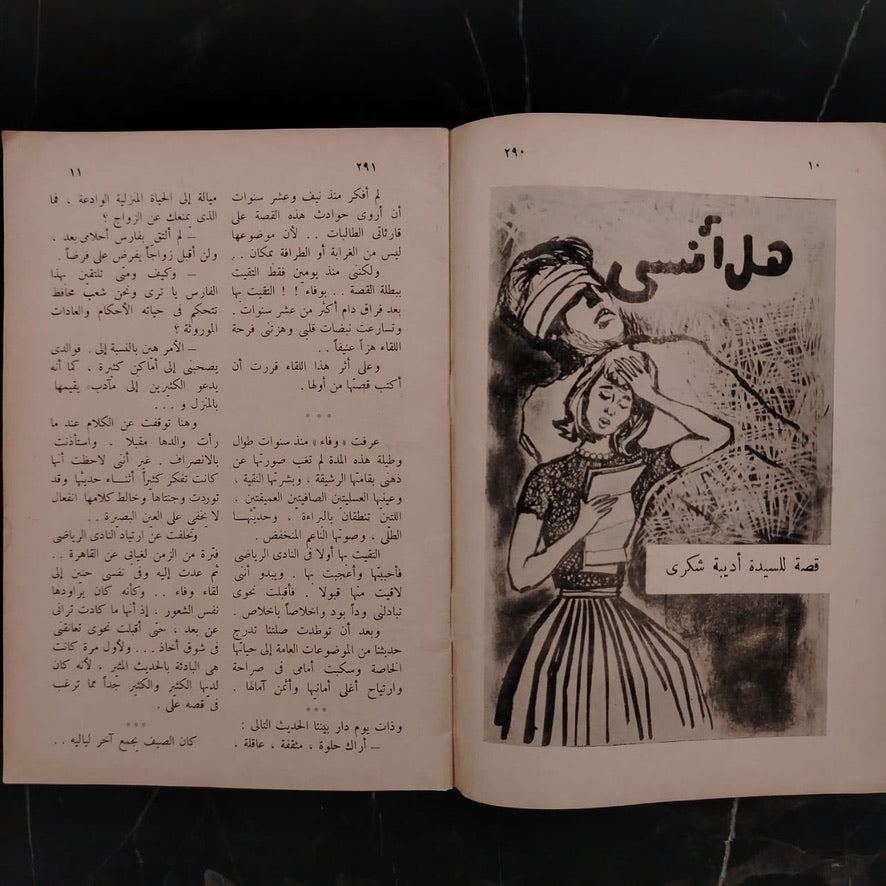 ٢٩٠
١٠
هل أنسى
قصة للسيدة أديبة شكرى
٢٩١
١١
لم أفكر منذ نيف وعشر سنوات
أن أروى حوادث هذه القصة على
قارئاتى الطالبات . . لأن موضوعها
ليس من الغرابة أو الطرافة بمكان . .
ولكننى منذ يومين فقط التقيت
ببطلة القصة . . بوفاء ! ! التقيت بها
بعد فراق دام أكثر من عشر سنوات .
وتسارعت نبضات قلبى وهزتنى فرحة
اللقاء هزاً عنيفاً . .
وعلى أثر هذا اللقاء قررت أن
أكتب قصتها من أولها .
* * *
عرفت « وفاء » منذ سنوات طوال
وطيلة هذه المدة لم تغب صورتها عن
ذهنى بقامتها الرشيقة ، وبشرتها النقية ،
وعينيها العسليتين الصافيتين العميقتين .
اللتين تنطقان بالبراءة ، وحديثها
الطلى ، وصوتها الناعم المنخفض .
التقيت بها أولا فى النادى الرياضى
فأحببتها وأعجبت بها . ويبدو أننى
لاقيت منها قبولا . فأقبلت نحوى
تبادلنى وداً بود وإخلاصاً بإخلاص .
وبعد أن توطدت صلتنا تدرج
حديثنا من الموضوعات العامة إلى حياتها
الخاصة وسكبت أمامى فى صراحة
وارتياح أغلى أمانيها وأثمن آمالها .
* * *
وذات يوم دار بيننا الحديث التالى :
– أراك حلوة ، مثقفة ، عاقلة ،
ميالة إلى الحياة المنزلية الوادعة ، فما
الذى يمنعك عن الزواج ؟
– لم ألتق بفارس أحلامى بعد ،
ولن أقبل زواجاً يفرض على فرضاً .
– وكيف ومتى تلتقين بهذا
الفارس يا ترى ونحن شعب محافظ
تتحكم فى حياته الأحكام والعادات
الموروثة ؟
– الأمر هين بالنسبة إلى . فوالدى
يصحبنى إلى أماكن كثيرة ، كما أنه
يدعو الكثيرين إلى مآدب يقيمها
بالمنزل و . . .
وهنا توقفت عن الكلام عند ما
رأت والدها مقبلا . واستأذنت
بالانصراف . غير أننى لاحظت أنها
كانت تفكر كثيراً أثناء حديثها وقد
توردت وجنتاها وخالط كلامها انفعال
لا يخفى على العين البصيرة . .
وتخلفت عن ارتياد النادى الرياضى
فترة من الزمن لغيابى عن القاهرة . .
ثم عدت إليه وفى نفسى حنين إلى
لقاء وفاء . . وكأنه كان يراودها
نفس الشعور . إذ أنها ما كادت ترانى
عن بعد ، حتى أقبلت نحوى تعانقنى
فى شوق أخاذ . . . ولأول مرة كانت
هى البادئة بالحديث المثير . لأنه كان
لديها الكثير والكثير جداً مما ترغب
فى قصه على .
* * *
كان الصيف يجمع آخر لياليه . .